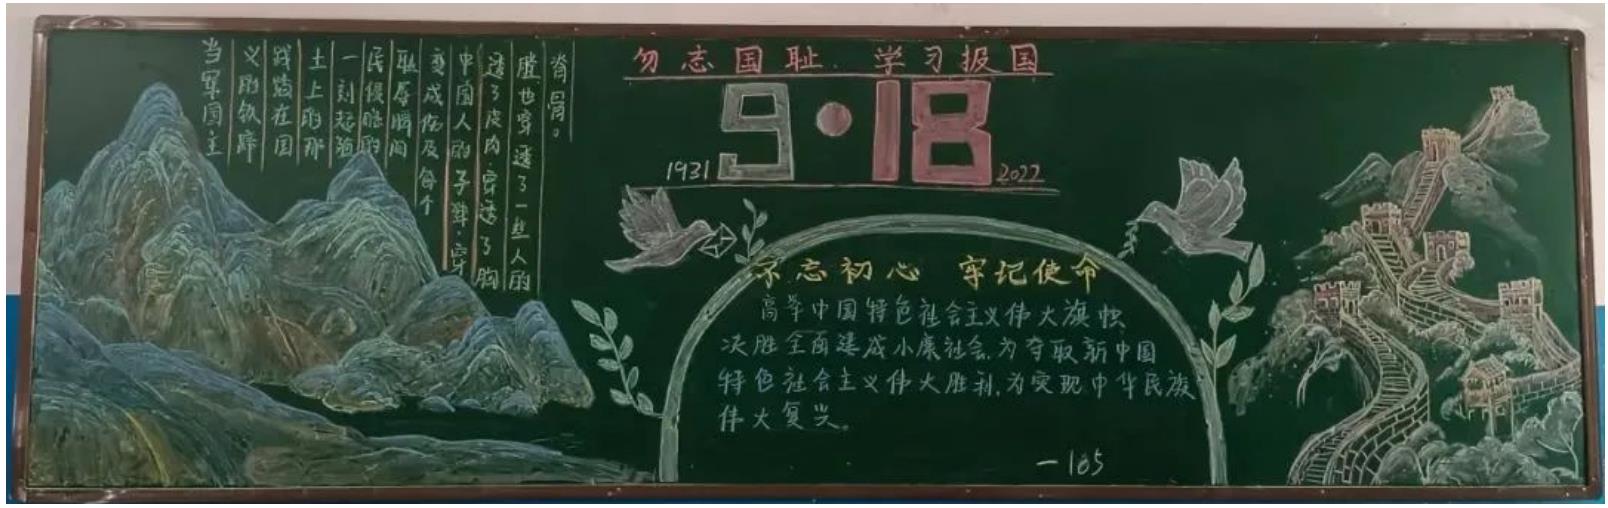 当军国主
义的铁蹄
践踏在国
土上的那
一刻起殖
民侵略的
耻辱瞬间
变成伤及每个
中国人的子弹.穿
透了皮肉.穿透了胸
膛.也穿透了一些人的
脊骨。
勿忘国耻.学习报国
9·18
1931
2022
不忘初心 牢记使命
高举中国特色社会主义伟大旗帜
决胜全面建成小康社会,为夺取新中国
特色社会主义伟大胜利,为实现中华民族
伟大复兴。
一105